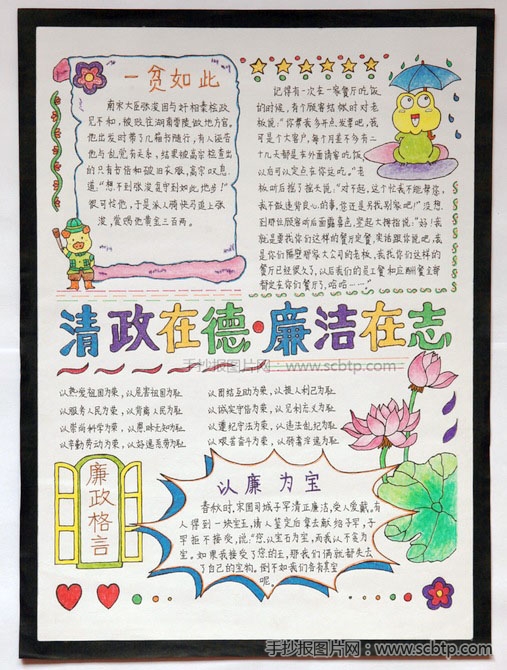 一贫如此
南宋大臣张浚因与奸相秦桧政
见不和，被贬往湖南零陵做地方官，
他出发时带了几箱书随行，有人诬告
他与乱党有关系，结果被高宗检查出
的只有书信和破旧衣服，高宗叹息
道：“想不到张浚贫守到如此地步！”
很可怜他，于是派人骑快马追上张
浚，赏赐他黄金三百两。
记得有一次在一家餐厅吃饭
的时候，有个顾客结帐时对老
板说：“你票我多开点发票吧，我
可是个大客户，每个月差不多有二
十九天都是在外面请客吃饭，
以后可以定点在你这吃。”老
板听后摇了摇头说：“对不起，这个忙我不能帮你，
我不做违背良心的事，您还是另找别家吧！”没想
到那位顾客听后面露喜色，竖起大拇指说：“好！我
就是要找你们这样的餐厅定餐，实话跟你说吧，我
是你们隔壁那家大公司的老板，我找你们这样的
餐厅已经很久了，以后我们的员工餐和应酬餐全部
都定在你们餐厅了，哈哈……”
清政在德·廉洁在志
手抄报图片网：www.scbtp.com
以热爱祖国为荣，以危害祖国为耻
以服务人民为荣，以背离人民为耻
以崇尚科学为荣，以愚昧无知为耻
以辛勤劳动为荣，以好逸恶劳为耻
以团结互助为荣，以损人利己为耻
以诚实守信为荣，以见利忘义为耻
以遵纪守法为荣，以违法乱纪为耻
以艰苦奋斗为荣，以骄奢淫逸为耻
廉政格言
以廉为宝
春秋时，宋国司城子罕清正廉洁，受人爱戴。有
人得到一块宝玉，请人鉴定后拿去献给子罕，子
罕拒不接受，说：“您以宝石为宝，而我以不贪为
宝。如果我接受了您的玉，那我们俩就都失去
了自己的宝物。倒不如我们各有其宝
呢。
手抄报图片网：www.scbtp.com